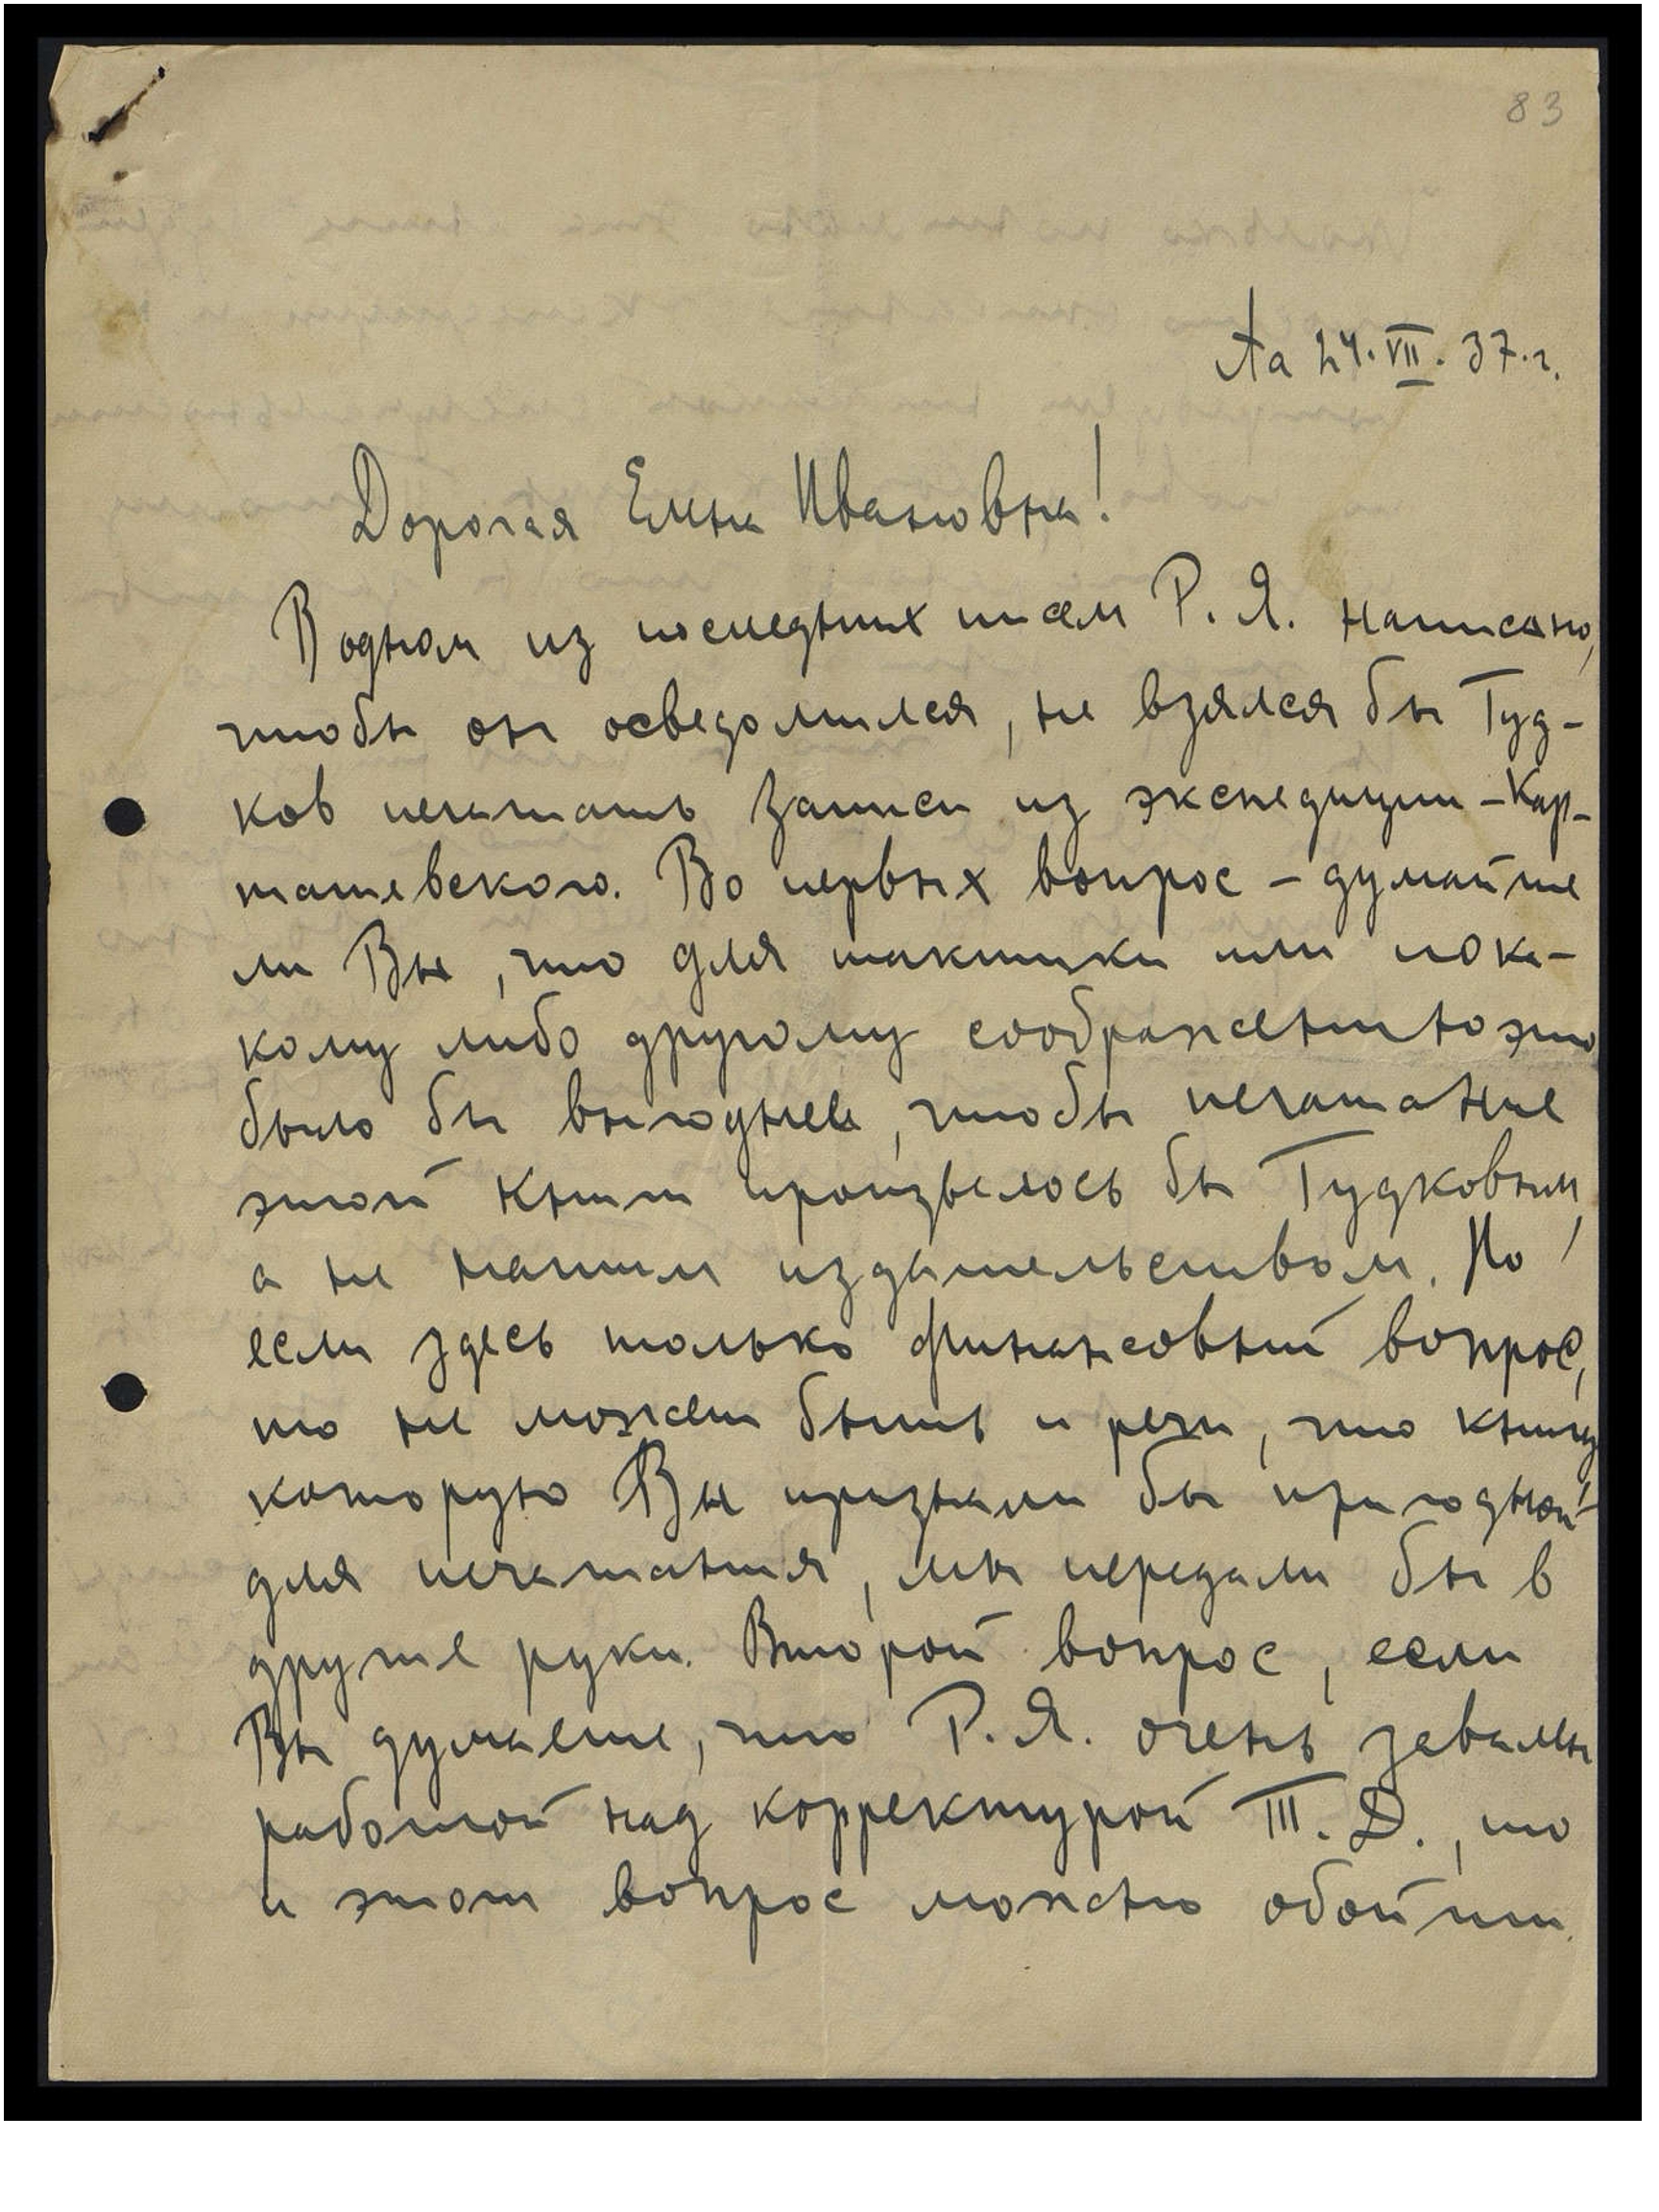 83
24.VII.37.г.
Дорогая Елена Ивановна!
В одном из последних писем Р. Я. написано,
чтобы он осведомился, не взялся бы Гуд-
ков печатать Записи из экспедиции - Кор-
ташевского. Во первых вопрос - думайте
ли Вы, что для тактики или по ка-
кому либо другому соображению это
было бы выгоднее, чтобы печатание
этой книги произвелось бы Гудковым,
а не нашим издательством. Но
если здесь только финансовый вопрос,
то не может быть и речи, что книгу
которую Вы признали бы пригодной
для печатания, мы передали бы в
другие руки. Второй вопрос, если
Вы думаете, что Р. Я. очень завален
работой над корректурой III. Д., то
и этот вопрос можно обойти.